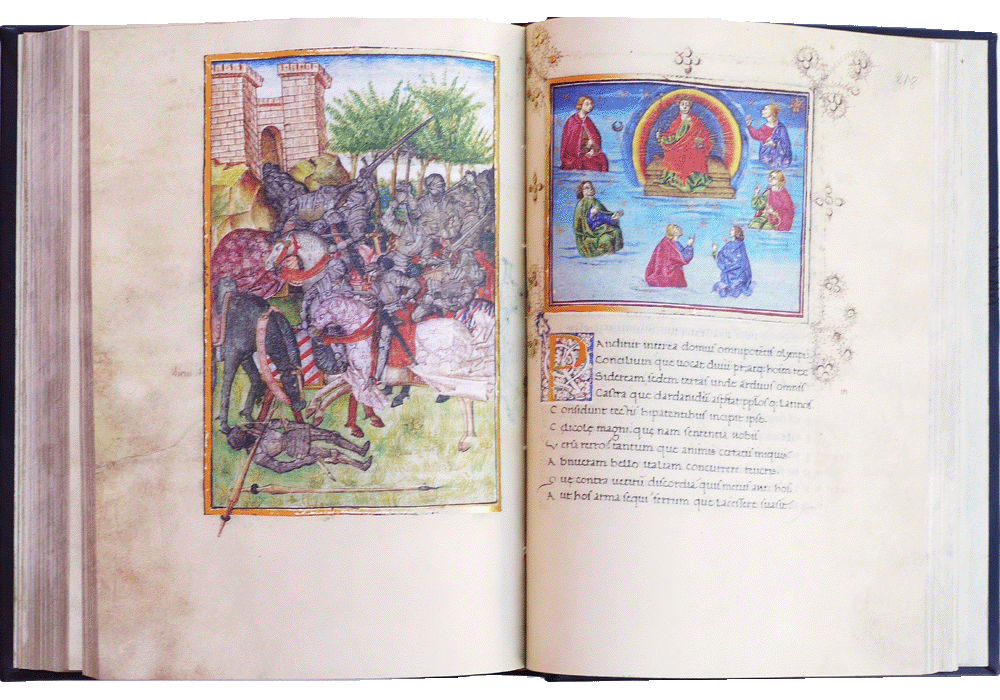 Panditur interea domus omnipotentis olympi
Concilium que vocat divu pr atq; hoim rex
Sideream sedem terras unde arduus omnis
Castra que dardanidu aspitat pplos q; Latinos
Considunt techis bipatentibus incipit ipse.
C elicole magni, que nam sententia vobis
versa retro tantum que animis certatis iniquis
A bnueram bello italiam concurrere teucris.
Q ue contra vetitu discordia quis metus aut hos
A ut hos arma sequi ferrum que lacessere suasit